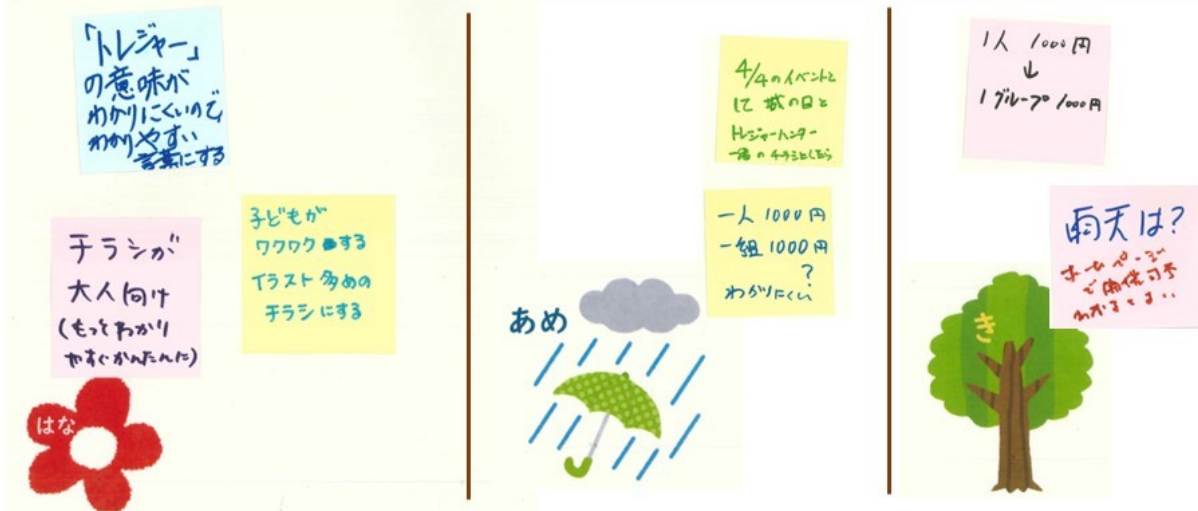 「トレジャー」
の意味が
わかりにくいので、
わかりやすい
言葉にする
チラシが
大人向け
(もっとわかり
やすくかんたんに)
子どもが
ワクワクする
イラスト多めの
チラシにする
はな
4/4のイベントと
して 城の日と
トレジャーハンター
一緒のチラシとしたら
一人 1000円
一組 1000円
?
わかりにくい
あめ
1人 1000円
↓
1グループ 1000円
雨天は?
ホームページ
で開催可否
き